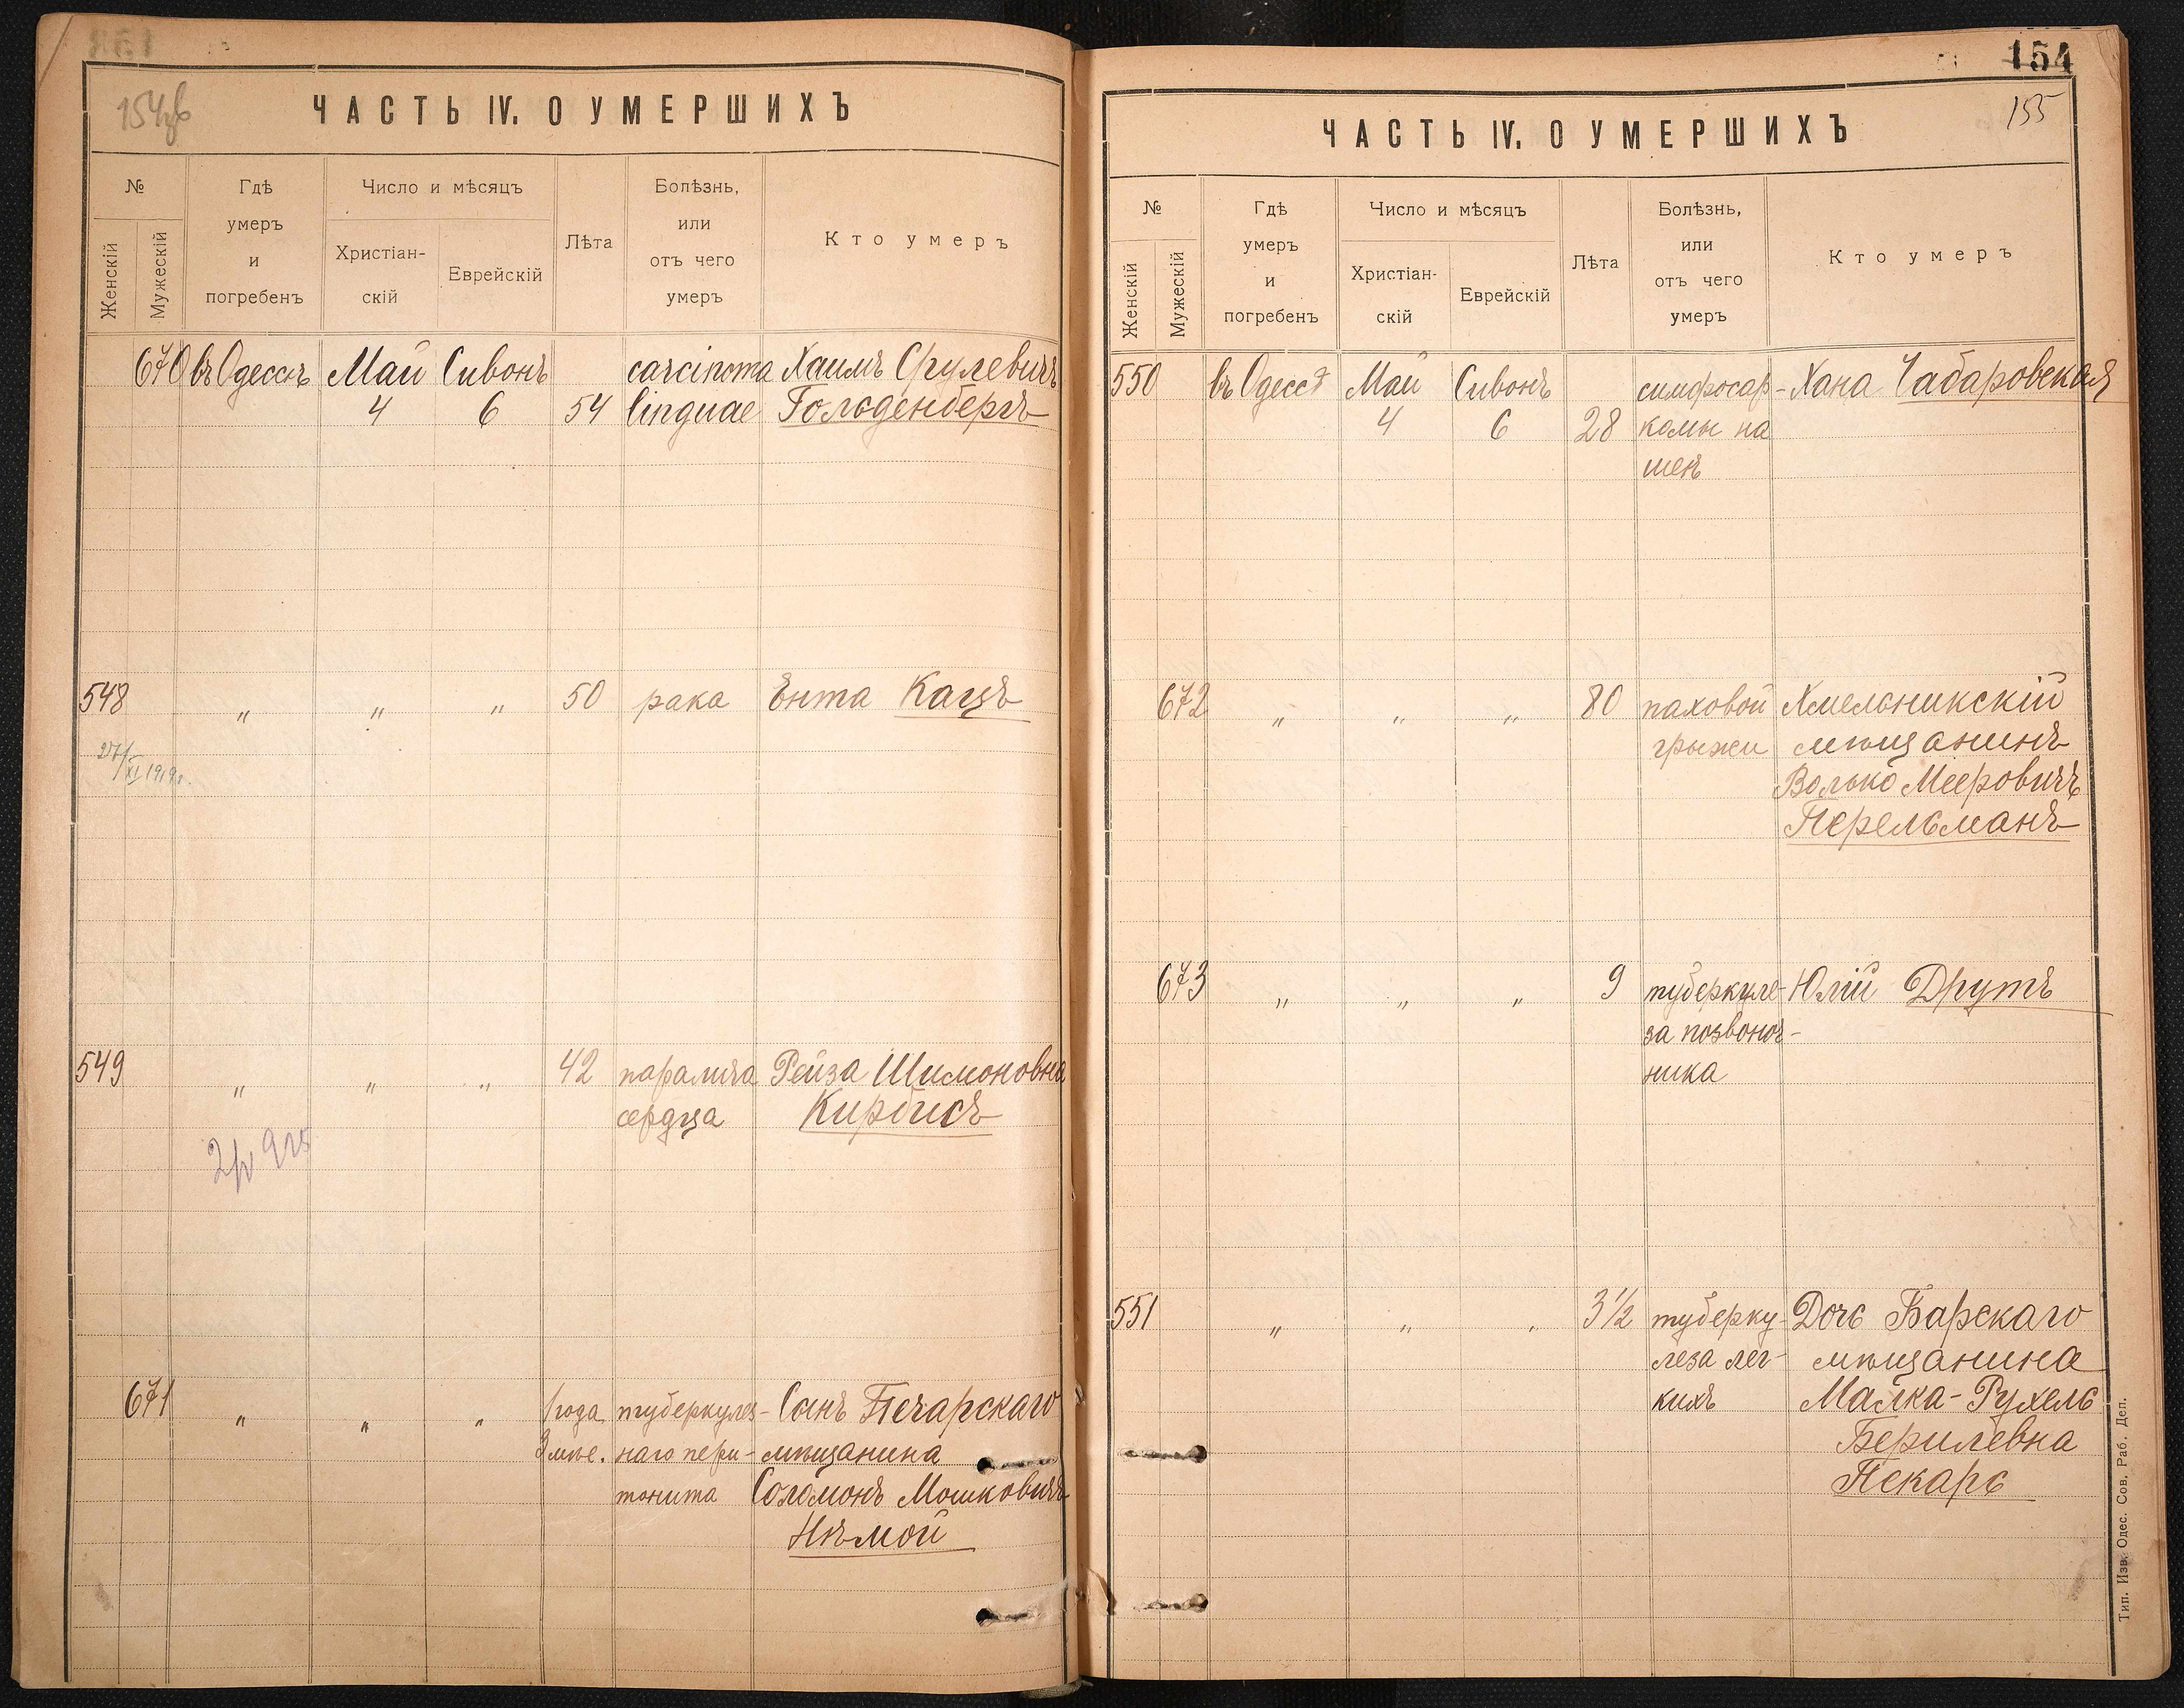 154
ЧАСТЬ IV. О УМЕРШИХЪ
№
Женскій
Мужескій
Гдѣ
умеръ
и
погребенъ
Число и мѣсяцъ
Христіан-
скій
Еврейскій
Лѣта
Болѣзнь,
или
отъ чего
умеръ
Кто умеръ
670 въ Одессѣ Май Сивонъ carcinoma Хаимъ Срулевичъ
4 6 54 linguae Гольденбергъ
548 " " " 50 рака Ента Кацъ
XI 1919 г.
549 " " " 42 паралича Рейза Шимоновна
сердца Кирбисъ
671 " " " 1 года туберкулез- Сынъ Печарскаго
3 мѣс. наго пери- мѣщанина
тонита Соломонъ Мошковичъ
Нѣмой
154
155
ЧАСТЬ IV. О УМЕРШИХЪ
№
Женскій
Мужескій
Гдѣ
умеръ
и
погребенъ
Число и мѣсяцъ
Христіан-
скій
Еврейскій
Лѣта
Болѣзнь,
или
отъ чего
умеръ
Кто умеръ
550 въ Одессѣ Май Сивонъ лимфосар- Хана Чабаровская
4 6 28 комы на
шеѣ
672 " " " 80 паховой Хмельникскій
грыжи мѣщанинъ
Волько Мееровичъ
Перельманъ
673 " " " 9 туберкуле- Юлій Друтъ
за позвоноч-
ника
551 " " " 3½ туберку- Дочь Барскаго
леза лег- мѣщанина
кихъ Малка-Рухель
Берилевна
Пекарь
Тип. Изв. Одес. Сов. Раб. Деп.